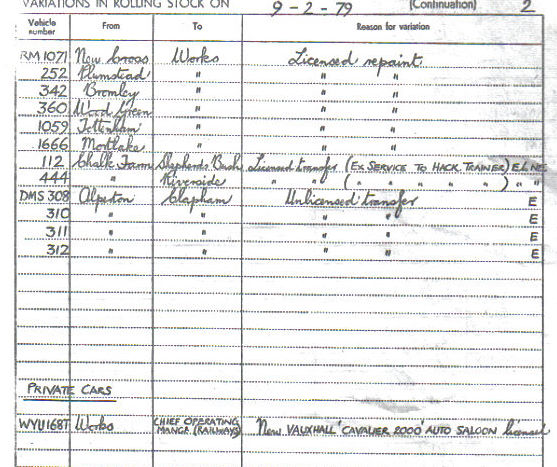 VARIATIONS IN ROLLING STOCK ON 9-2-79 (Continuation) 2
Vehicle number From To Reason for variation
RM 1071 New Cross Works Licensed repaint
252 Plumstead " " "
342 Bromley " " "
360 Wood Green " " "
1059 Tottenham " " "
1666 Mortlake " " "
112 Chalk Farm Shepherds Bush Licensed transfer (EX SERVICE TO HACK. TRAINER)
444 " Riverside " " ( " " " " " ) " "
DMS 308 Alperton Clapham Unlicensed transfer E
310 " " " " E
311 " " " " E
312 " " " " E
PRIVATE CARS
WYU168T Works CHIEF OPERATING MANGR (RAILWAYS) New VAUXHALL 'CAVALIER 2000' AUTO SALOON licensed